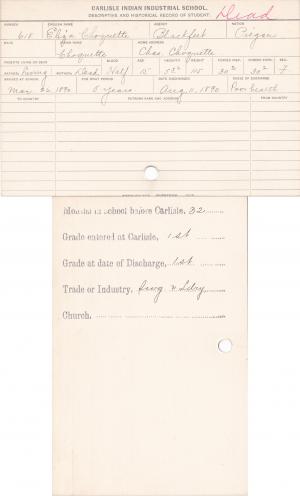 CARLISLE INDIAN INDUSTRIAL SCHOOL.
DESCRIPTIVE AND HISTORICAL RECORD OF STUDENT.
Dead
NUMBER ENGLISH NAME AGENCY NATION
618 Eliza Choquette Blackfeet Piegan
BAND INDIAN NAME HOME ADDRESS
Choquette Chas. Choquette
PARENTS LIVING OR DEAD BLOOD AGE HEIGHT WEIGHT FORCED INSP. FORCED EXPR. SEX
FATHER Living MOTHER Dead Half 15 5'2" 115 30" 30" F
ARRIVED AT SCHOOL FOR WHAT PERIOD DATE DISCHARGED CAUSE OF DISCHARGE
Mar 26 1890 5 years Aug 11, 1890 Poor health
TO COUNTRY PATRONS NAME AND ADDRESS FROM COUNTRY
Months in School before Carlisle, 32
Grade entered at Carlisle, 1st
Grade at date of Discharge, 1st
Trade or Industry, Swg & Ldry
Church,